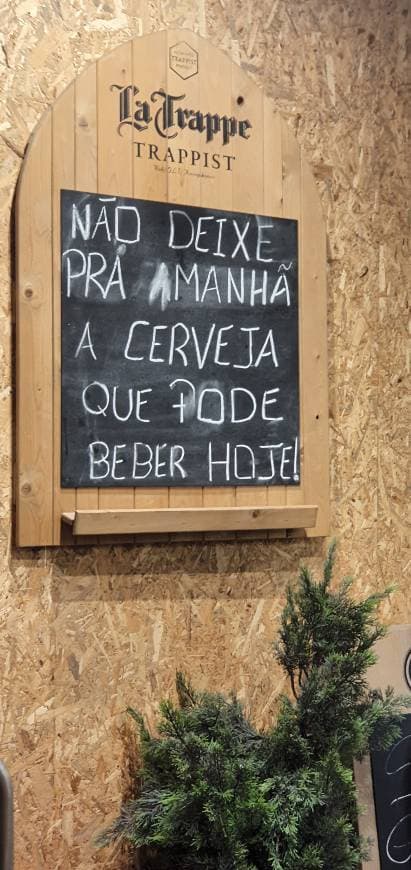 TRAPPIST
La Trappe
TRAPPIST
NÃO DEIXE
PRÁ AMANHÃ
A CERVEJA
QUE PODE
BEBER HOJE!